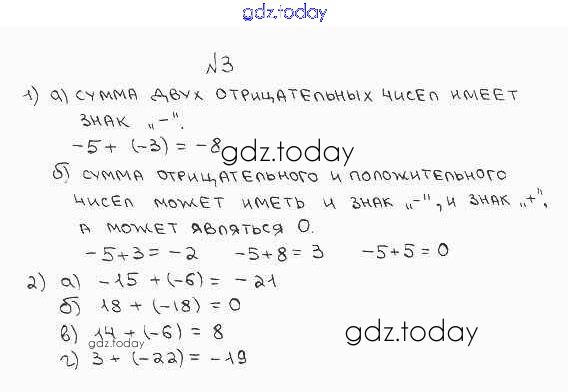 gdz.today
№3
1) а) сумма двух отрицательных чисел имеет
знак „-".
-5 + (-3) = -8
gdz.today
б) сумма отрицательного и положительного
чисел может иметь и знак „-", и знак „+",
а может являться 0.
-5+3 = -2 -5+8 = 3 -5+5 = 0
2) а) -15 + (-6) = -21
б) 18 + (-18) = 0
в) 14 + (-6) = 8
gdz.today
gdz.today
г) 3 + (-22) = -19